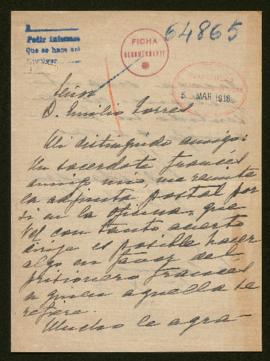 64865
Pedir informes
Que se hace así
FICHA
5 MAR 1916
Señor
D. Emilio Torres
Mi distinguido amigo:
Un sacerdote frances
amigo mio, me remite
la adjunta postal por
si en la oficina, que
Vd con tanto acierto
dirige es posible hacer
algo en favor del
prisionero frances
a quien aquella se
refiere.
Mucho le agra-